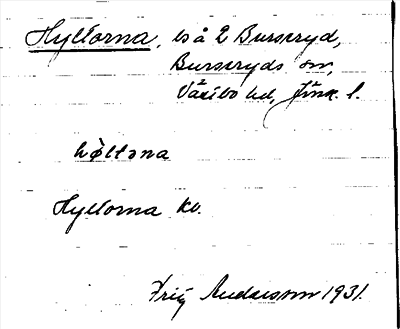 Hyltorna, ls å 2 Burseryd,
Burseryds sn,
Västbo hd, Jönk. l.
hø̀ltəna
Hyltorna kb.
Fritz Andersson 1931.